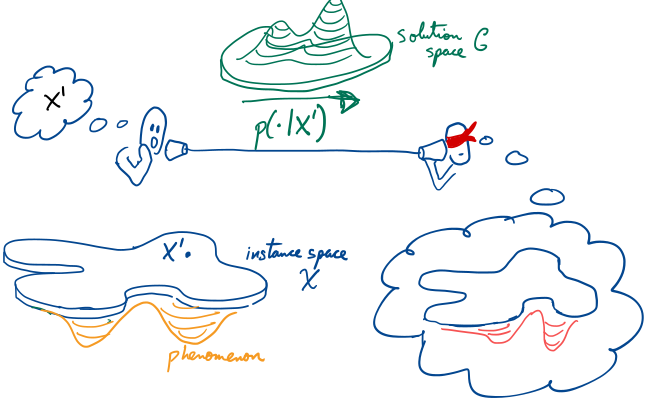 solution
space G
X'
p(·|X')
X'
instance space
X
phenomenon